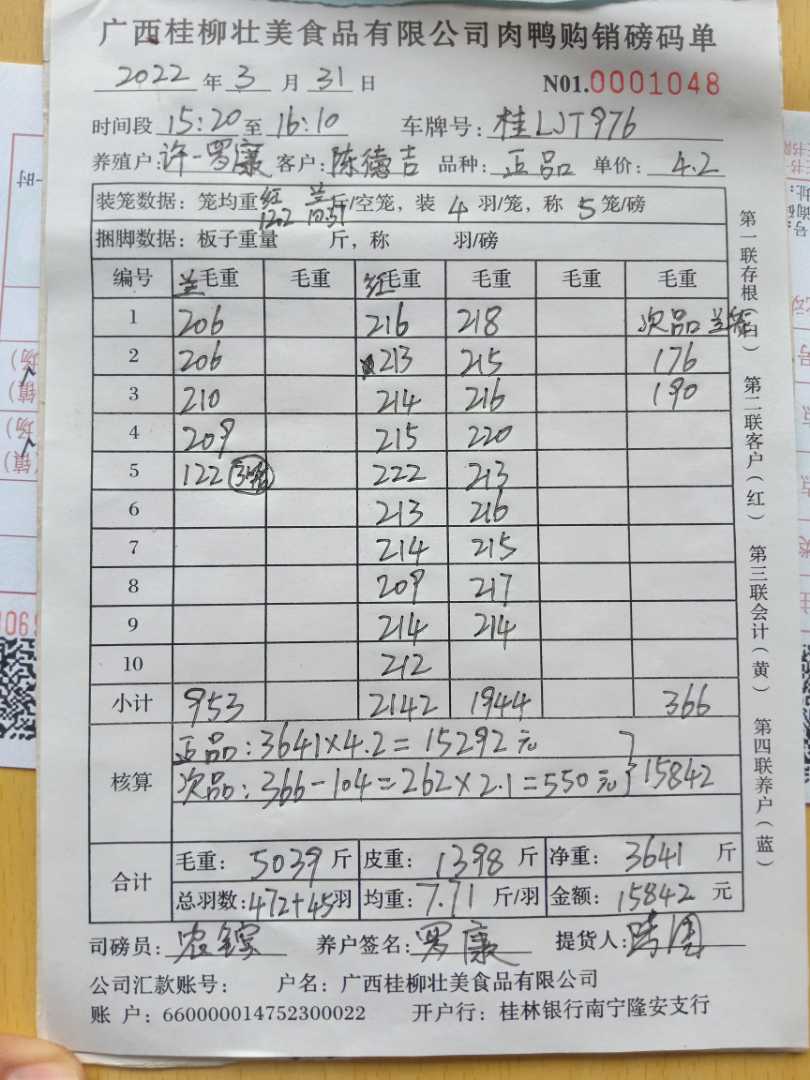 广西桂柳壮美食品有限公司肉鸭购销磅码单
2022 年 3 月 31 日 N01.0001048
时间段 15:20 至 16:10 车牌号: 桂LJT976
养殖户: 许一罗廉 客户: 陈德吉 品种: 正品 单价: 4.2
装笼数据: 笼均重 红 兰 斤/空笼, 装 4 羽/笼, 称 5 笼/磅
捆脚数据: 板子重量 斤, 称 羽/磅
编号 兰毛重 毛重 红毛重 毛重 毛重 毛重
1 206 216 218 次品兰
2 206 213 215 176
3 210 214 216 190
4 209 215 220
5 122 222 213
6 213 216
7 214 215
8 209 217
9 214 214
10 212
小计 953 2142 1944 366
核算
正品: 3641×4.2=15292元
次品: 366-104=262×2.1=550元 } 15842
合计
毛重: 5039 斤 皮重: 1398 斤 净重: 3641 斤
总羽数: 472+45羽 均重: 7.71 斤/羽 金额: 15842 元
司磅员: 养户签名: 罗廉 提货人:
公司汇款账号: 户名: 广西桂柳壮美食品有限公司
账 户: 660000014752300022 开户行: 桂林银行南宁隆安支行
第一联存根(白) 第二联客户(红) 第三联会计(黄) 第四联养户(蓝)